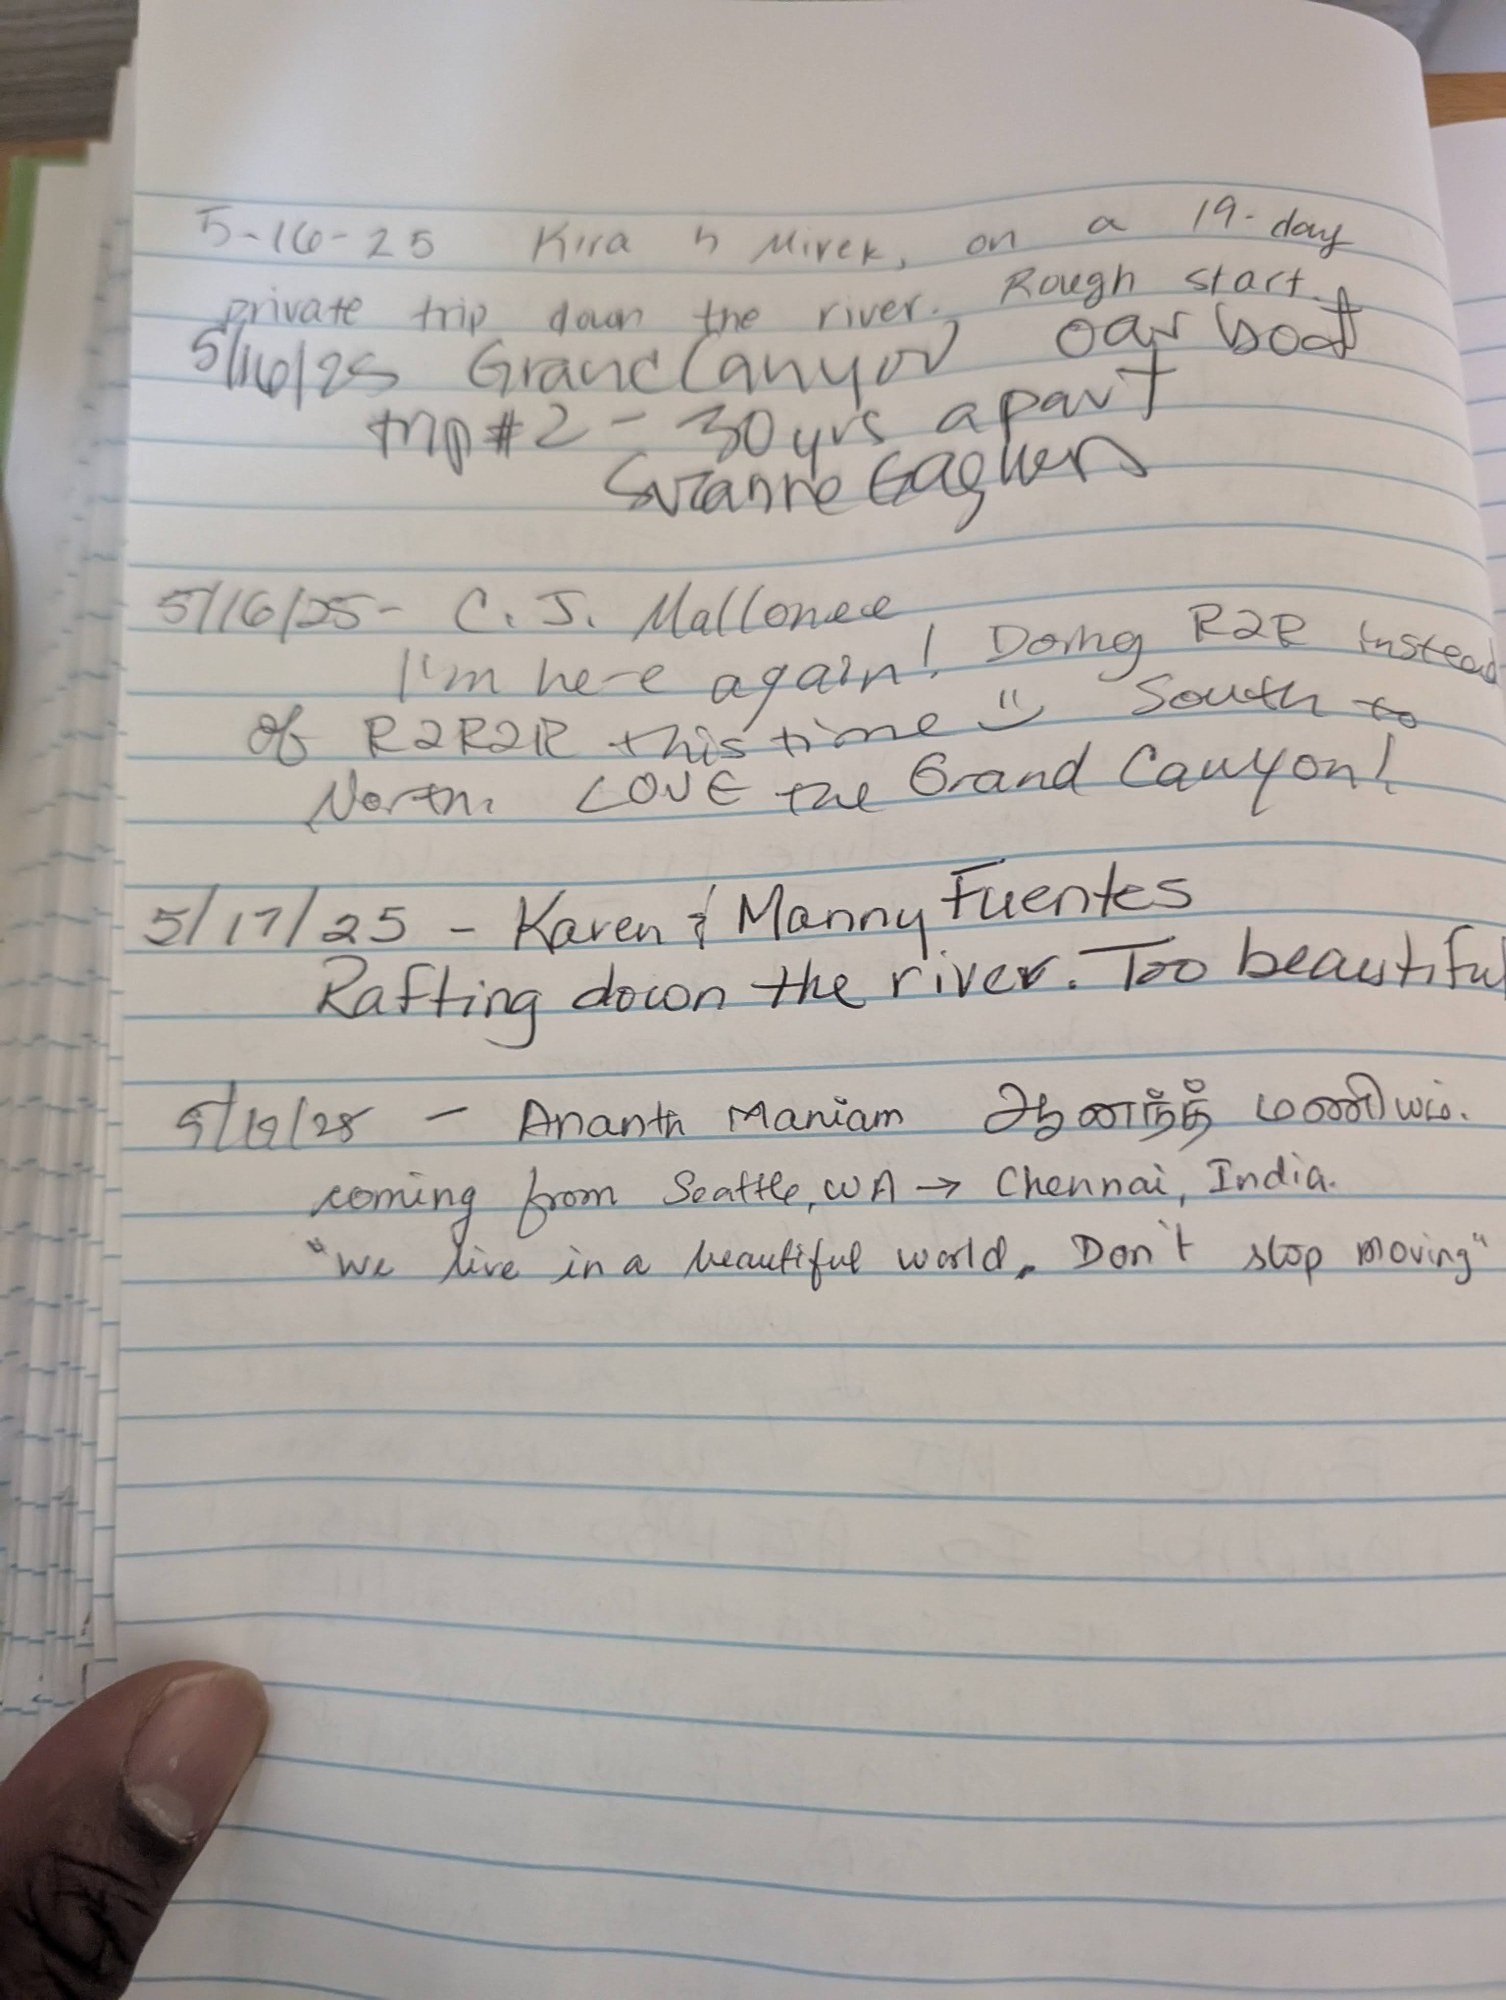 5-16-25 Kira & Mirek, on a 19-day
private trip down the river. Rough start.
5/16/25 Grand Canyon oar boat
trip #2 - 30 yrs apart
Suzanne
5/16/25 - C. J. Mallonee
I'm here again! Doing R2R instead
of R2R2R this time :) South to
North. LOVE the Grand Canyon!
5/17/25 - Karen & Manny Fuentes
Rafting down the river. Too beautiful
5/19/25 - Ananth Maniam ஆனந்த் மணியம்.
coming from Seattle, WA → Chennai, India.
"We live in a beautiful world. Don't stop moving"